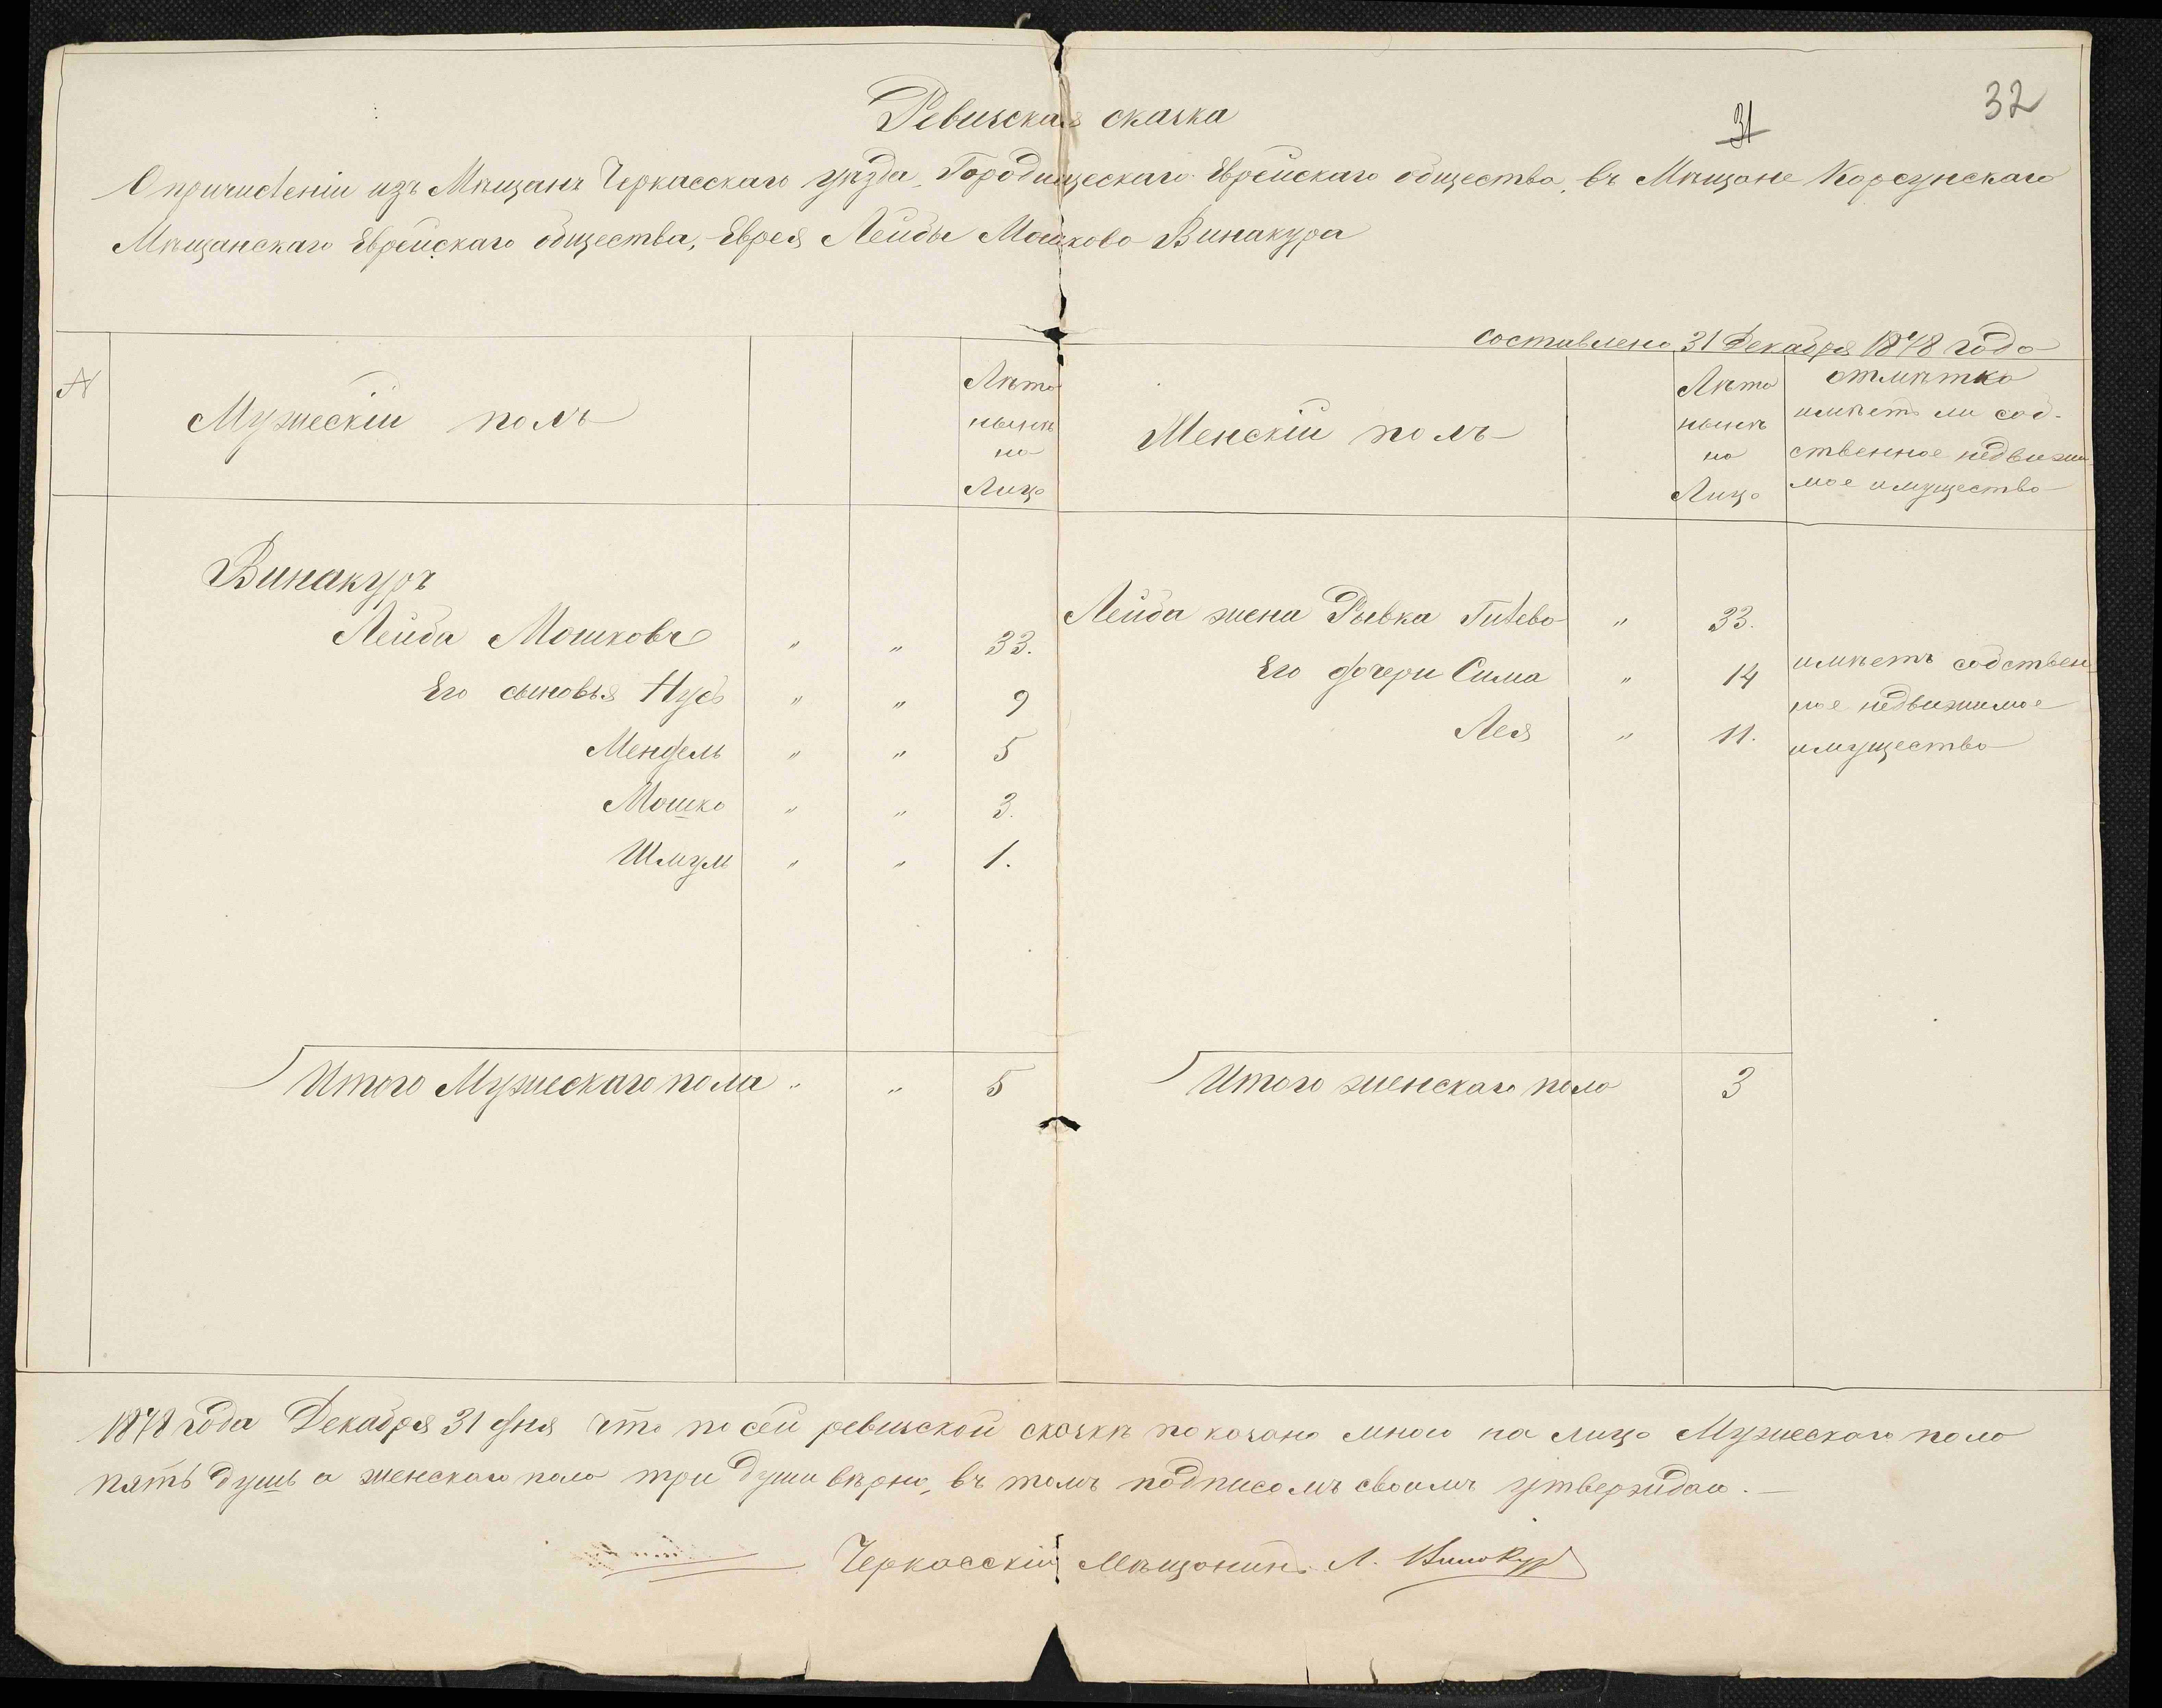 32
31
Ревизская сказка
О причисленіи изъ Мѣщанъ Черкасскаго уѣзда Городищескаго Еврейскаго общества, въ Мѣщане Корсунскаго
Мѣщанскаго Еврейскаго общества, Еврея Лейбы Мошкова Винакура
составлена 31 Декабря 1878 года
№
Мужескій полъ
Лѣта
нынѣ
на
Лицо
Женскій полъ
Лѣта
нынѣ
на
Лицо
отмѣтка
имѣетъ ли соб-
ственное недвижи
мое имущество
Винакуръ
Лейба Мошковъ " " 33.
Его сыновья " " 9
Мендель " " 5
Мошко " " 3.
Шмул " " 1.
Лейба жена Рывка Гилева " 33.
Его дочери Сима " 14
Лея " 11.
имѣетъ собствен
ное недвижимое
имущество
Итого Мужескаго пола " " 5
Итого женскаго пола 3
1878 года Декабря 31 дня что по сей ревизской сказкѣ показано мною на лицо Мужескаго пола
пять душь а женскаго пола три души вѣрно, въ томъ подписомъ своимъ утверждаю.
Черкасскій Мѣщанинъ Л. Винокур